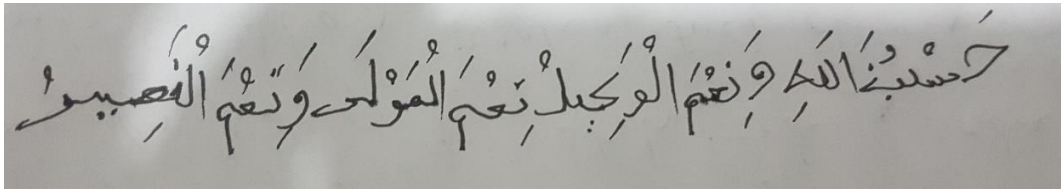 حَسْبُنَا اللهِ وَنِعْمَ الْوَكِيلُ نِعْمَ الْمَوْلَى وَنِعْمَ النَّصِيرُ